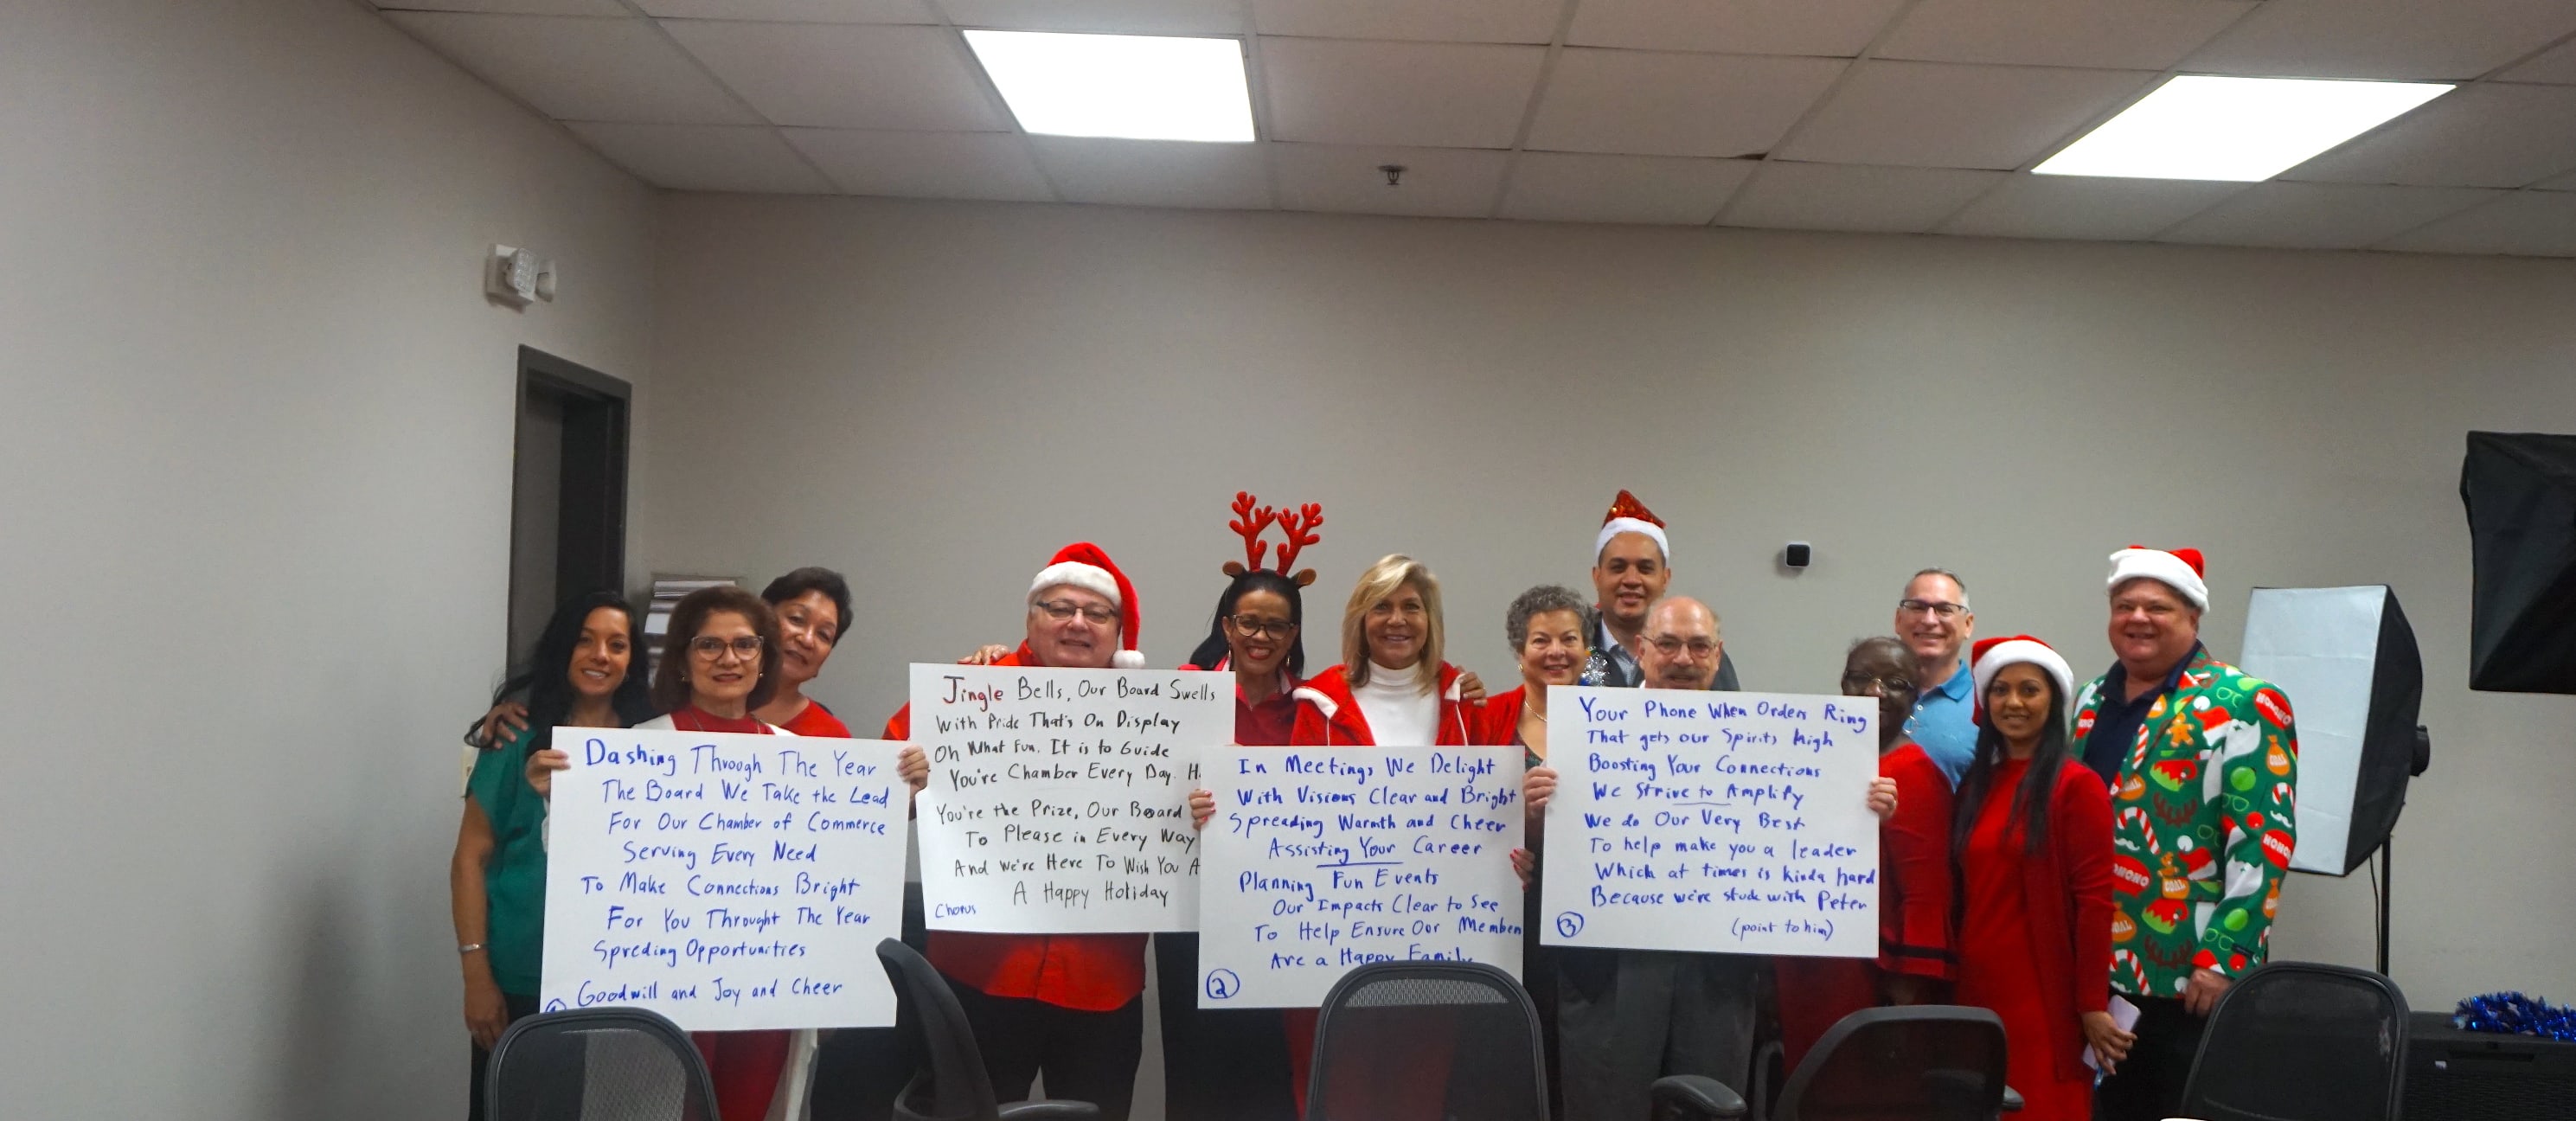 Dashing Through The Year
The Board We Take the Lead
For Our Chamber of Commerce
Serving Every Need
To Make Connections Bright
For You Throught The Year
Spreding Opportunities
Goodwill and Joy and Cheer
Jingle Bells, Our Board Swells
With Pride That's On Display
Oh What Fun, It is to Guide
You're Chamber Every Day. H
You're the Prize, Our Board
To Please in Every Way
And We're Here To Wish You A
A Happy Holiday
Chorus
In Meetings We Delight
With Visions Clear and Bright
Spreading Warmth and Cheer
Assisting Your Career
Planning Fun Events
Our Impacts Clear to See
To Help Ensure Our Member
Are a Happy Family
2
Your Phone When Orders Ring
That gets our Spirits high
Boosting Your Connections
We Strive to Amplify
We do Our Very Best
To help make you a leader
Which at times is kinda hard
Because we're stuck with Peter
(point to him)
3
HOHOHO
COAL
HOHOHO
HOHOHO
COAL
COAL